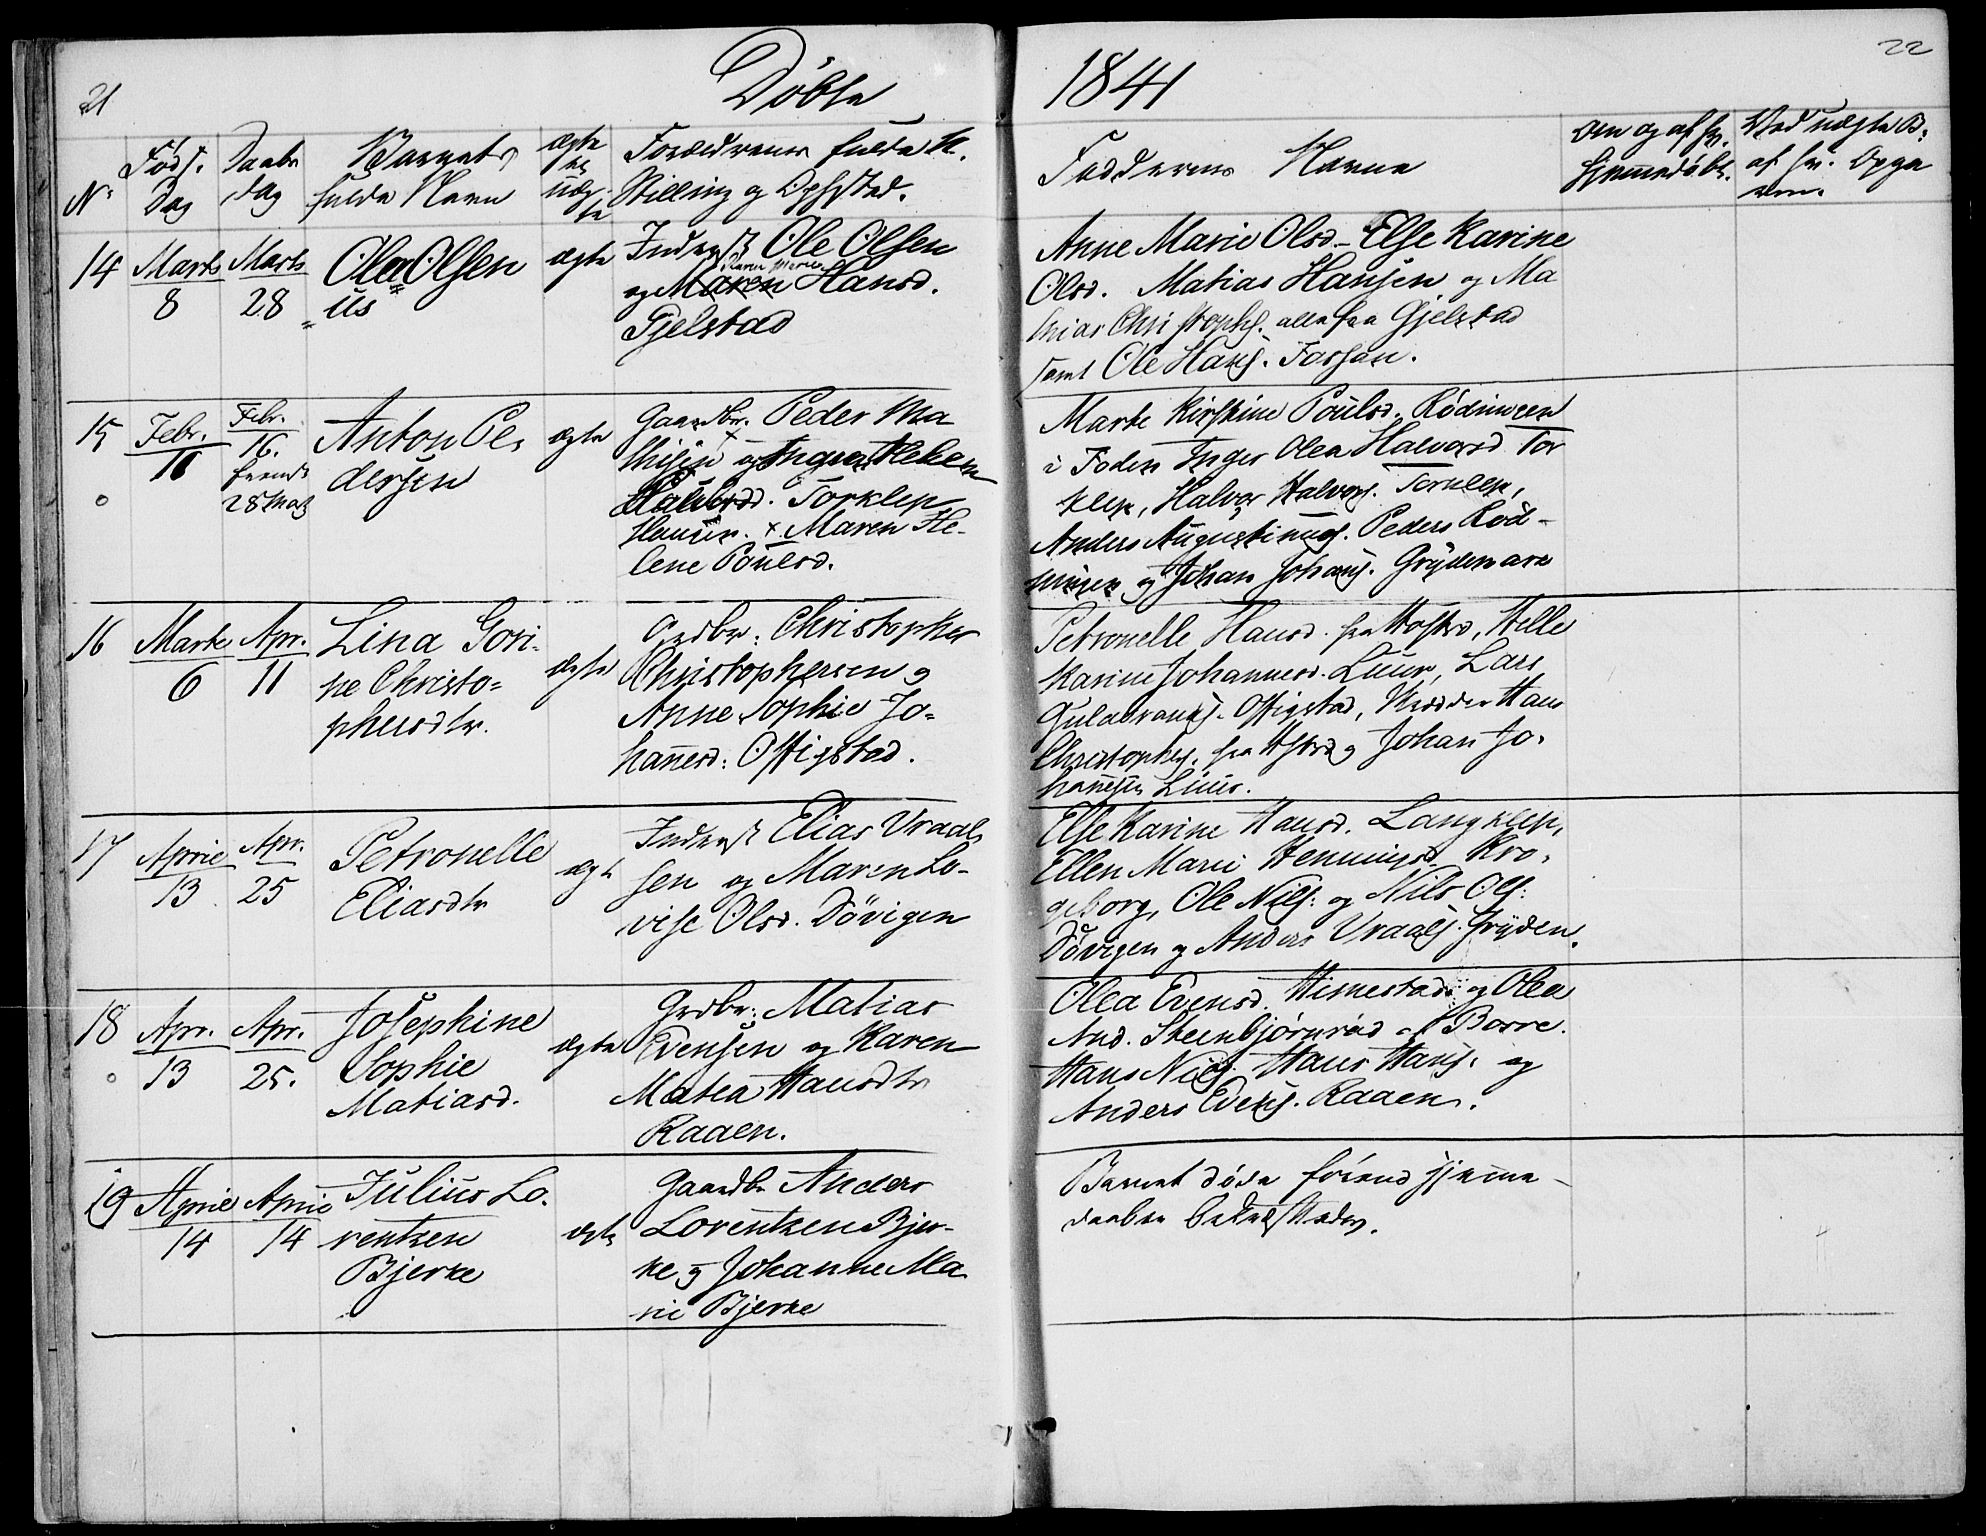 21
Døbte
1841
22
No
Føds.
Dag
Daabs
dag
Barnets
fulde Navn
ægte
el.
uæg-
te
Forældrenes fulde N.
Stilling og Opholsted.
Faddernes Navne
Om og af hv.
hjemmedøbt.
Ved uægte B.
af hv. Opga
ven.
14
Marts
8
Marts
28
Ole Olsen
us
ægte
Inderst Ole Olsen
Karen Marie
og Maren Hansd.
Gjelstad
Anne Marie Olsd - Else Karine
Olsd. Matias Hansen og Ma
thias Christophs. alle fra Gjelstad
samt Ole Hans. Fossan.
15
Febr.
16
Febr.
16.
fremst
28 Marts
Anton Pe-
dersen
ægte
Gaardbr. Peder Ma
thisen og Helene
Halvorsd. Torklep
Hansen. x Maren He-
lene Poulsd.
Marte Kirstine Poulsd. Rødningen
i Foden Inger Olea Halvorsd Tor
klep, Halvor Halvors. Torklep,
Anders Augustinus. Peders Rød-
ningen og Johan Johans. Grydemare
16
Marts
6
Apr.
11
Lina Gori-
ne Christo-
phersdtr.
ægte
Grdbr. Christopher
Christophersen og
Anne Sophie Jo-
hannesd. Offigstad.
Petronelle Hansd. fra Hofsrd, Helle
Karine Johannesd. Luur, Lars
Guldbrands. Offigstad, Hans
Christophs. fra og Johan Jo-
hannesen Luur.
17
April
13
Apr.
25
Petronelle
Eliasdtr
ægte
Inderst Elias Vraal-
sen og Maren Lo-
vise Olsd. Døvigen
Else Karine Hansd. Langklep,
Ellen Marie Henningsd. Kro-
geborg, Ole Niels: og Nils Ols:
Døvigen og Anders Vraals. Gryden.
18
Apr.
13
Apr.
25.
Josephine
Sophie
Matiasd.
ægte
Grdbr. Matias
Evensen og Karen
Matea Hansdtr
Raaen.
Olea Evensd. Himestad og Olea
And. Steenbjørnrød af Borre.
Hans Niels. Hans Hans. og
Anders Evens. Raaen.
19
April
14
April
14
Julius Lo-
rentzen
Bjerke
ægte
Gaardbr Anders
Lorentzen Bjer-
ke og Johanne Ma
rie Bjerke
Barnet døde forend hjemme-
daaben